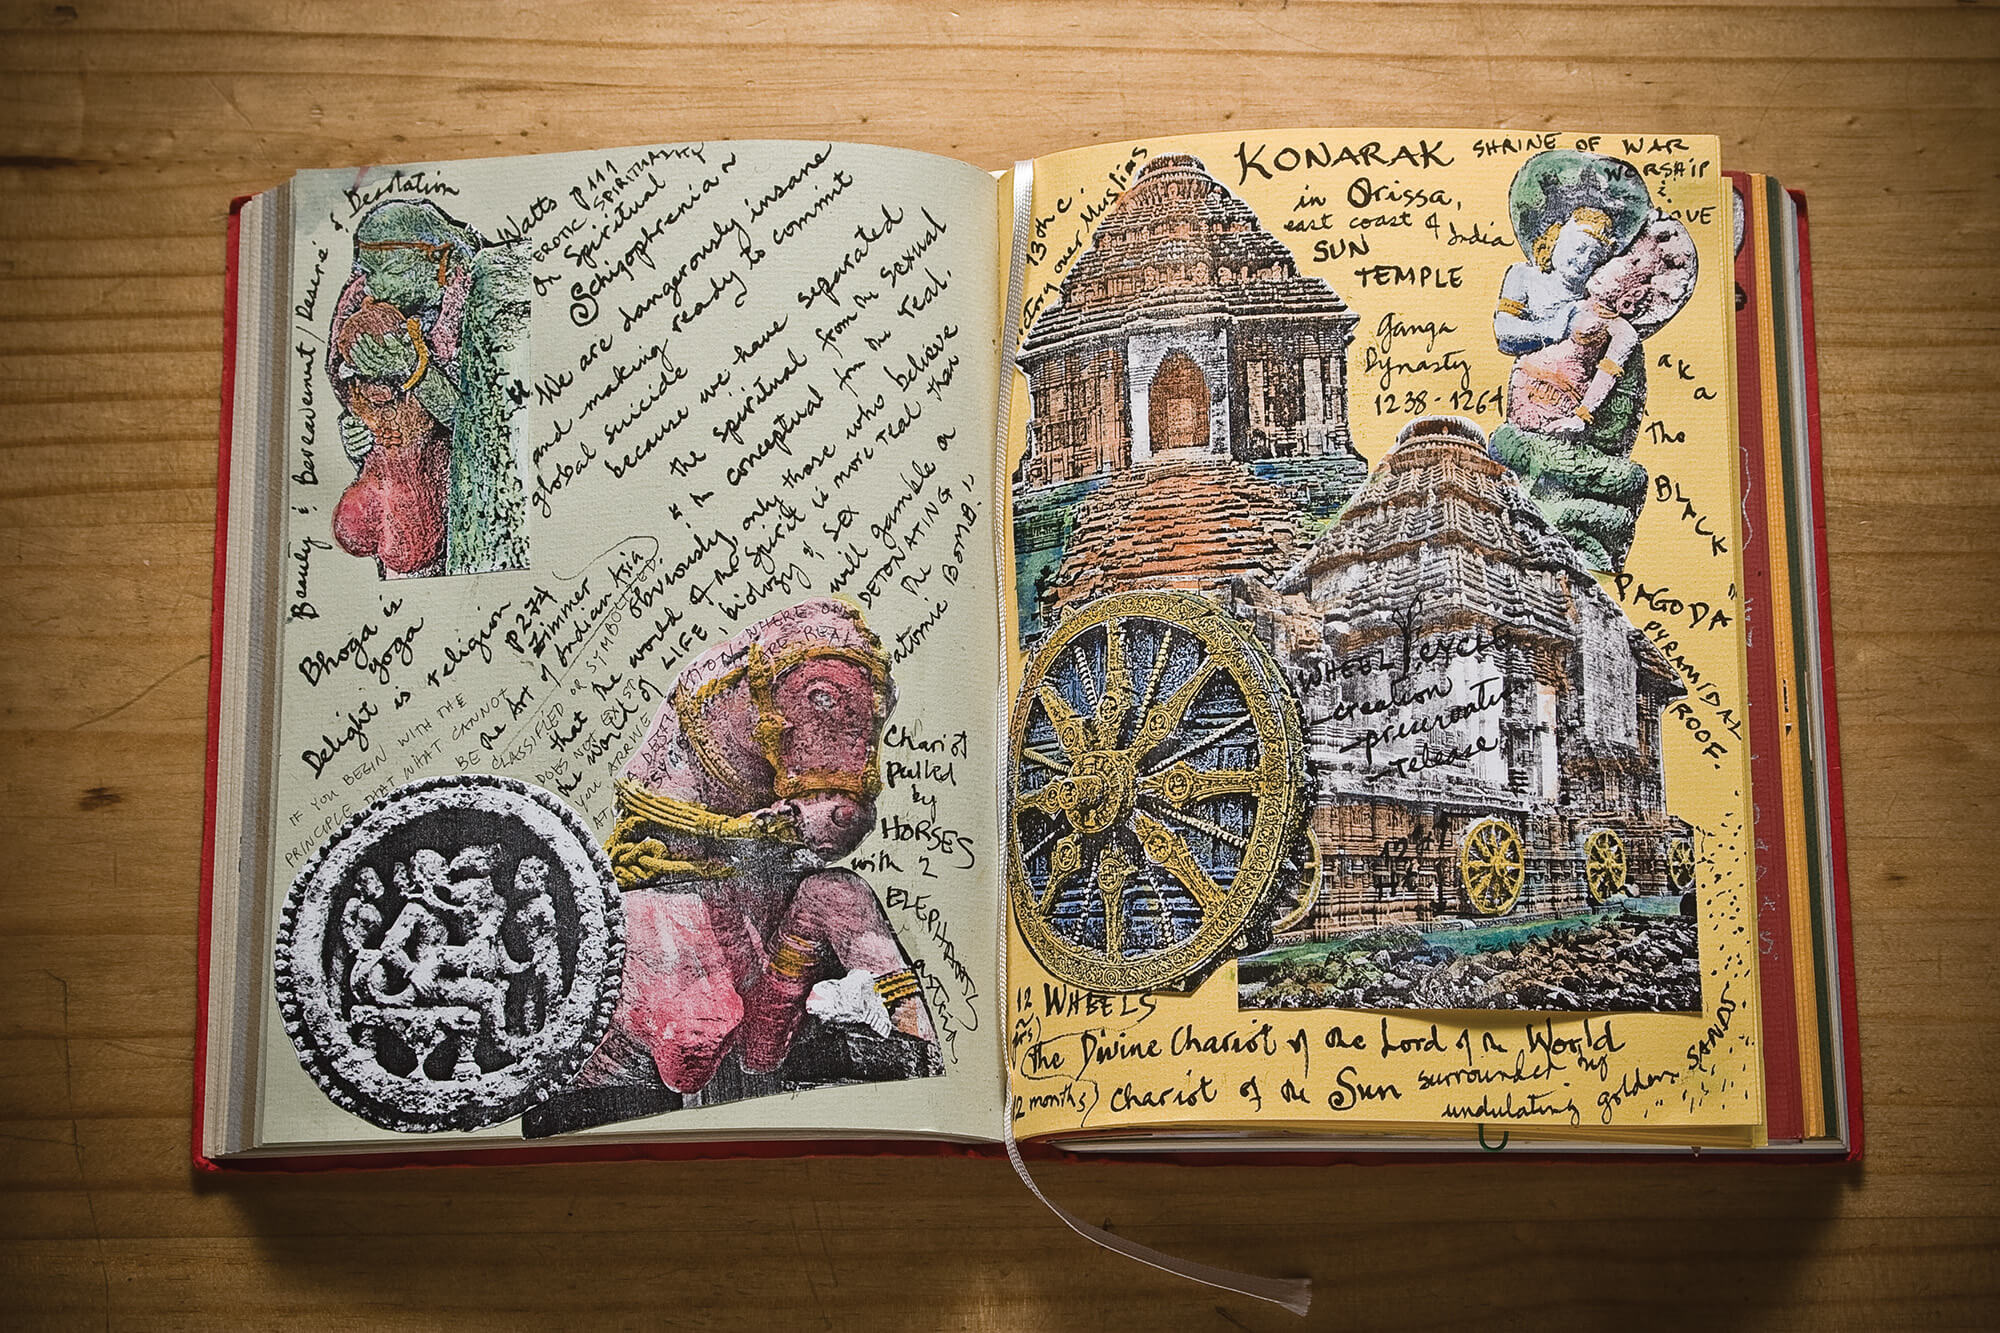 Beauty & Bereavement / Desire & Desolation
Watts p 111
EROTIC SPIRITUALITY
On Spiritual
Schizophrenia ~
" We are dangerously insane
and making ready to commit
global suicide
because we have separated
the spiritual from the sexual
" the conceptual from the real.
Obviously, only those who believe
that the world of the Spirit is more real than
the world of LIFE, biology & sex
will gamble on
DETONATING
the
atomic BOMB."
Bhoga is
yoga
Delight is religion
P274
Zimmer
the Art of Indian Asia
IF YOU BEGIN WITH THE
PRINCIPLE THAT WHAT CANNOT
BE CLASSIFIED OR SYMBOLIZED
DOES NOT EXIST
YOU ARRIVE
AT A DESTINATION WHERE ONLY
SYMBOLS ARE REAL
Chariot
pulled
by
HORSES
with 2
ELEPHANTS
13th C
victory over Muslims
KONARAK
in Orissa,
east coast of India
SUN
TEMPLE
SHRINE OF WAR
WORSHIP
&
LOVE
Ganga
Dynasty
1238-1264
aka
the
BLACK
PAGODA
PYRAMIDAL
ROOF.
WHEEL, CYCLE
- creation
- release
12 WHEELS
(12 months)
(the Divine Chariot of the Lord of the World
Chariot of the Sun surrounded by
undulating golden SANDS.